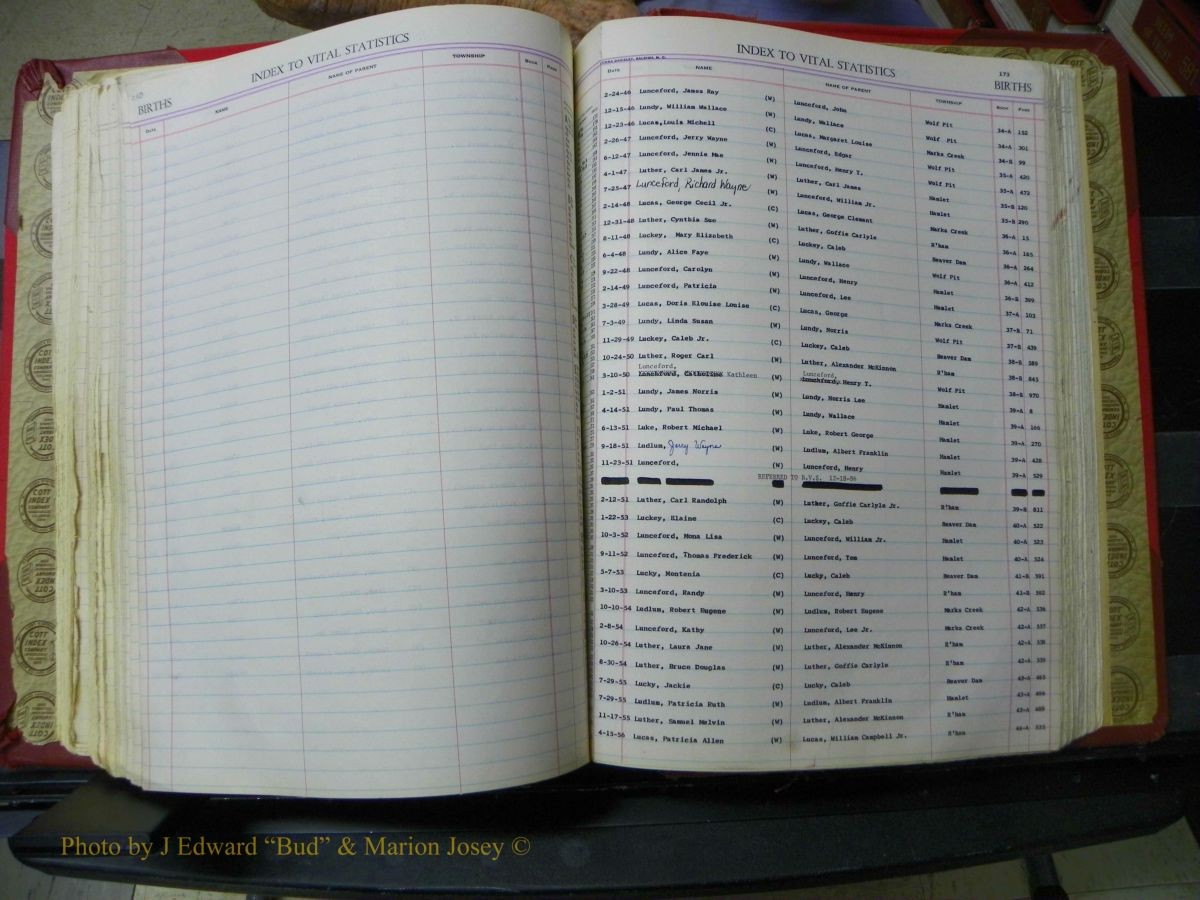 INDEX TO VITAL STATISTICS
BIRTHS
DATE NAME NAME OF PARENT TOWNSHIP BOOK PAGE
INDEX TO VITAL STATISTICS
173
BIRTHS
DATE NAME NAME OF PARENT TOWNSHIP BOOK PAGE
2-24-46 Lunceford, James Ray (W) Lunceford, John Wolf Pit 34-A 152
12-15-46 Lundy, William Wallace (W) Lundy, Wallace Wolf Pit 34-A 301
12-23-46 Lucas,Louis Michell (C) Lucas, Margaret Louise Marks Creek 34-B 99
2-26-47 Lunceford, Jerry Wayne (W) Lunceford, Edgar Wolf Pit 35-A 420
6-12-47 Lunceford, Jennie Mae (W) Lunceford, Henry T. Wolf Pit 35-A 472
4-1-47 Luther, Carl James Jr. (W) Luther, Carl James Hamlet 35-B 120
7-25-47 Lunceford, Richard Wayne (W) Lunceford, William Jr. Hamlet 35-B 290
2-14-48 Lucas, George Cecil Jr. (C) Lucas, George Clement Marks Creek 36-A 15
12-31-48 Luther, Cynthia Sue (W) Luther, Goffie Carlyle R'ham 36-A 165
8-11-48 Luckey, Mary Elizabeth (C) Luckey, Caleb Beaver Dam 36-A 264
6-4-48 Lundy, Alice Faye (W) Lundy, Wallace Wolf Pit 36-A 412
9-22-48 Lunceford, Carolyn (W) Lunceford, Henry Hamlet 36-B 399
2-14-49 Lunceford, Patricia (W) Lunceford, Lee Hamlet 37-A 103
3-28-49 Lucas, Doris Elouise Louise (C) Lucas, George Marks Creek 37-B 71
7-3-49 Lundy, Linda Susan (W) Lundy, Norris Wolf Pit 37-B 439
11-29-49 Luckey, Caleb Jr. (C) Luckey, Caleb Beaver Dam 38-B 589
10-24-50 Luther, Roger Carl (W) Luther, Alexander McKinnon R'ham 38-B 845
Lunceford, Lunceford,
3-10-50 Kathleen (W) Henry T. Wolf Pit 38-B 970
1-2-51 Lundy, James Norris (W) Lundy, Norris Lee Hamlet 39-A 8
4-14-51 Lundy, Paul Thomas (W) Lundy, Wallace Hamlet 39-A 166
6-13-51 Luke, Robert Michael (W) Luke, Robert George Hamlet 39-A 270
9-18-51 Ludlum, Jerry Wayne (W) Ludlum, Albert Franklin Hamlet 39-A 428
11-23-51 Lunceford, (W) Lunceford, Henry Hamlet 39-A 529
REFERRED TO R.V.S. 12-18-86
2-12-51 Luther, Carl Randolph (W) Luther, Goffie Carlyle Jr. R'ham 39-B 811
1-22-53 Luckey, Elaine (C) Luckey, Caleb Beaver Dam 40-A 522
10-3-52 Lunceford, Mona Lisa (W) Lunceford, William Jr. Hamlet 40-A 523
9-11-52 Lunceford, Thomas Frederick (W) Lunceford, Tom Hamlet 40-A 524
5-7-53 Lucky, Montenia (C) Lucky, Caleb Beaver Dam 41-B 391
3-10-53 Lunceford, Randy (W) Lunceford, Henry R'ham 41-B 392
10-10-54 Ludlum, Robert Eugene (W) Ludlum, Robert Eugene Marks Creek 42-A 336
2-8-54 Lunceford, Kathy (W) Lunceford, Lee Jr. Marks Creek 42-A 337
10-26-54 Luther, Laura Jane (W) Luther, Alexander McKinnon R'ham 42-A 338
8-30-54 Luther, Bruce Douglas (W) Luther, Goffie Carlyle R'ham 42-A 339
7-29-55 Lucky, Jackie (C) Lucky, Caleb Beaver Dam 43-A
7-29-55 Ludlum, Patricia Ruth (W) Ludlum, Albert Franklin Hamlet 43-A
11-17-55 Luther, Samuel Melvin (W) Luther, Alexander McKinnon R'ham 43-A
4-15-56 Lucas, Patricia Allen (W) Lucas, William Campbell Jr. R'ham 44-A
Photo by J Edward “Bud” & Marion Josey ©